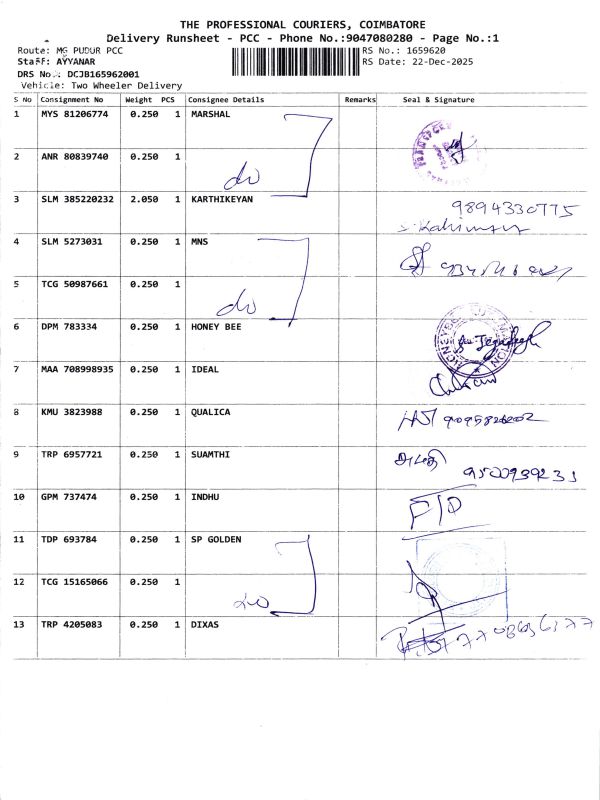 THE PROFESSIONAL COURIERS, COIMBATORE
Delivery Runsheet - PCC - Phone No.:9047080280 - Page No.:1
Route: MG PUDUR PCC RS No.: 1659620
Staff: AYYANAR RS Date: 22-Dec-2025
DRS No.: DCJB165962001
Vehicle: Two Wheeler Delivery
S No Consignment No Weight PCS Consignee Details Remarks Seal & Signature
1 MYS 81206774 0.250 1 MARSHAL
2 ANR 80839740 0.250 1 do
3 SLM 385220232 2.050 1 KARTHIKEYAN 9894330775
4 SLM 5273031 0.250 1 MNS
5 TCG 50987661 0.250 1 do
6 DPM 783334 0.250 1 HONEY BEE
7 MAA 708998935 0.250 1 IDEAL
8 KMU 3823988 0.250 1 QUALICA
9 TRP 6957721 0.250 1 SUAMTHI
10 GPM 737474 0.250 1 INDHU F/D
11 TDP 693784 0.250 1 SP GOLDEN
12 TCG 15165066 0.250 1 do
13 TRP 4205083 0.250 1 DIXAS